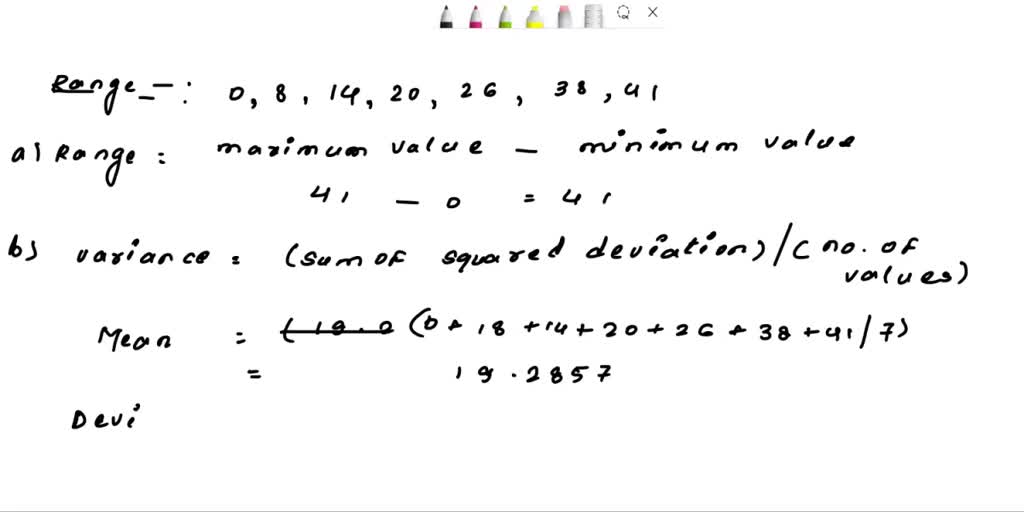 Range -: 0, 8, 14, 20, 26, 38, 41
a) Range: maximum value - minimum value
41 - 0 = 41
b) variance = (sum of squared deviation) / (no. of values)
Mean = (19.0 (0+18+14+20+26+38+41/7)
= 19.2857
Devi